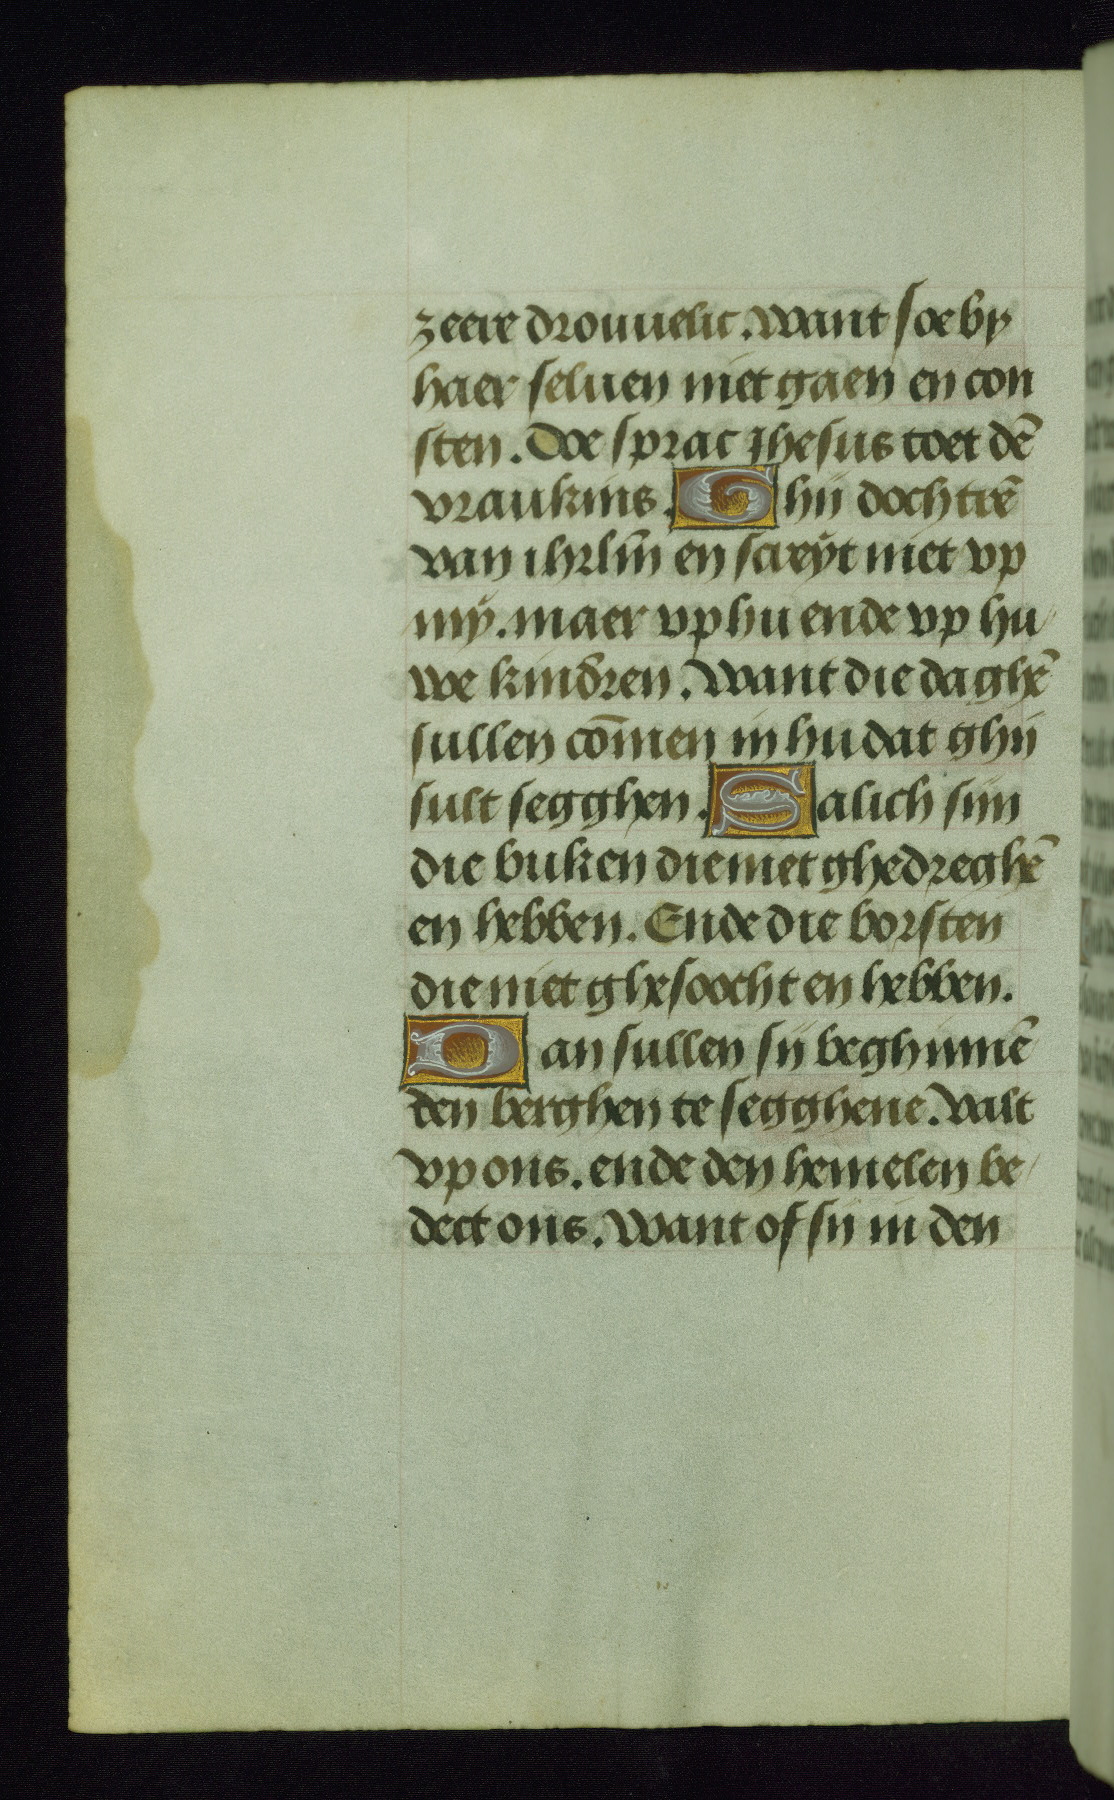 zeere drouuelic. Want soe by
haer seluen niet gaen en con
sten. Doe sprac ihesus toet dē
vraukins. Ghij dochtrē
van ihrlm̄ en screÿt niet vp
mÿ. maer vp hu ende vp hu/
we kindren. Want die daghē
sullen com̄en in hu dat ghij
sult segghen. Salich sijn
die buken die niet ghedreghē
en hebben. Ende die borsten
die niet ghesoocht en hebben.
Dan sullen sij beghinnē
den berghen te segghene. Valt
vp ons. ende den hemelen be/
dect ons. Want of sij in den